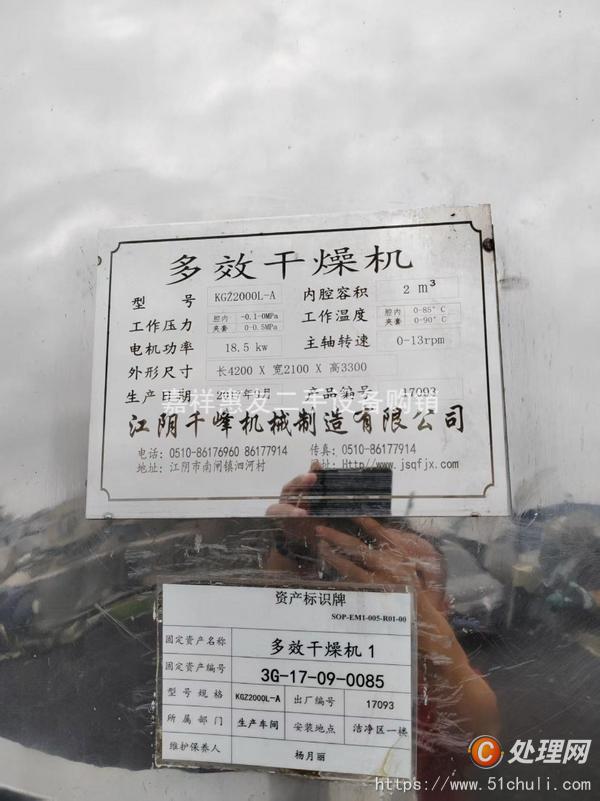 多效干燥机
型 号 KGZ2000L-A 内腔容积 2 m³
工作压力 腔内 -0.1-0MPa 夹套 0-0.5MPa 工作温度 腔内 0-85°C 夹套 0-90°C
电机功率 18.5 kw 主轴转速 0-13rpm
外形尺寸 长4200 X 宽2100 X 高3300
生产日期 产品编号 17093
嘉祥惠发二手设备购销
江阴千峰机械制造有限公司
电话: 0510-86176960 86177914 传真: 0510-86177914
地址: 江阴市南闸镇泗河村 网址: Http//www.jsqfjx.com
资产标识牌
SOP-EM1-005-R01-00
固定资产名称 多效干燥机1
固定资产编号 3G-17-09-0085
型号规格 KGZ2000L-A 出厂编号 17093
所属部门 生产车间 安装地点 洁净区一楼
维护保养人 杨月丽
C 处理网
https://www.51chuli.com/